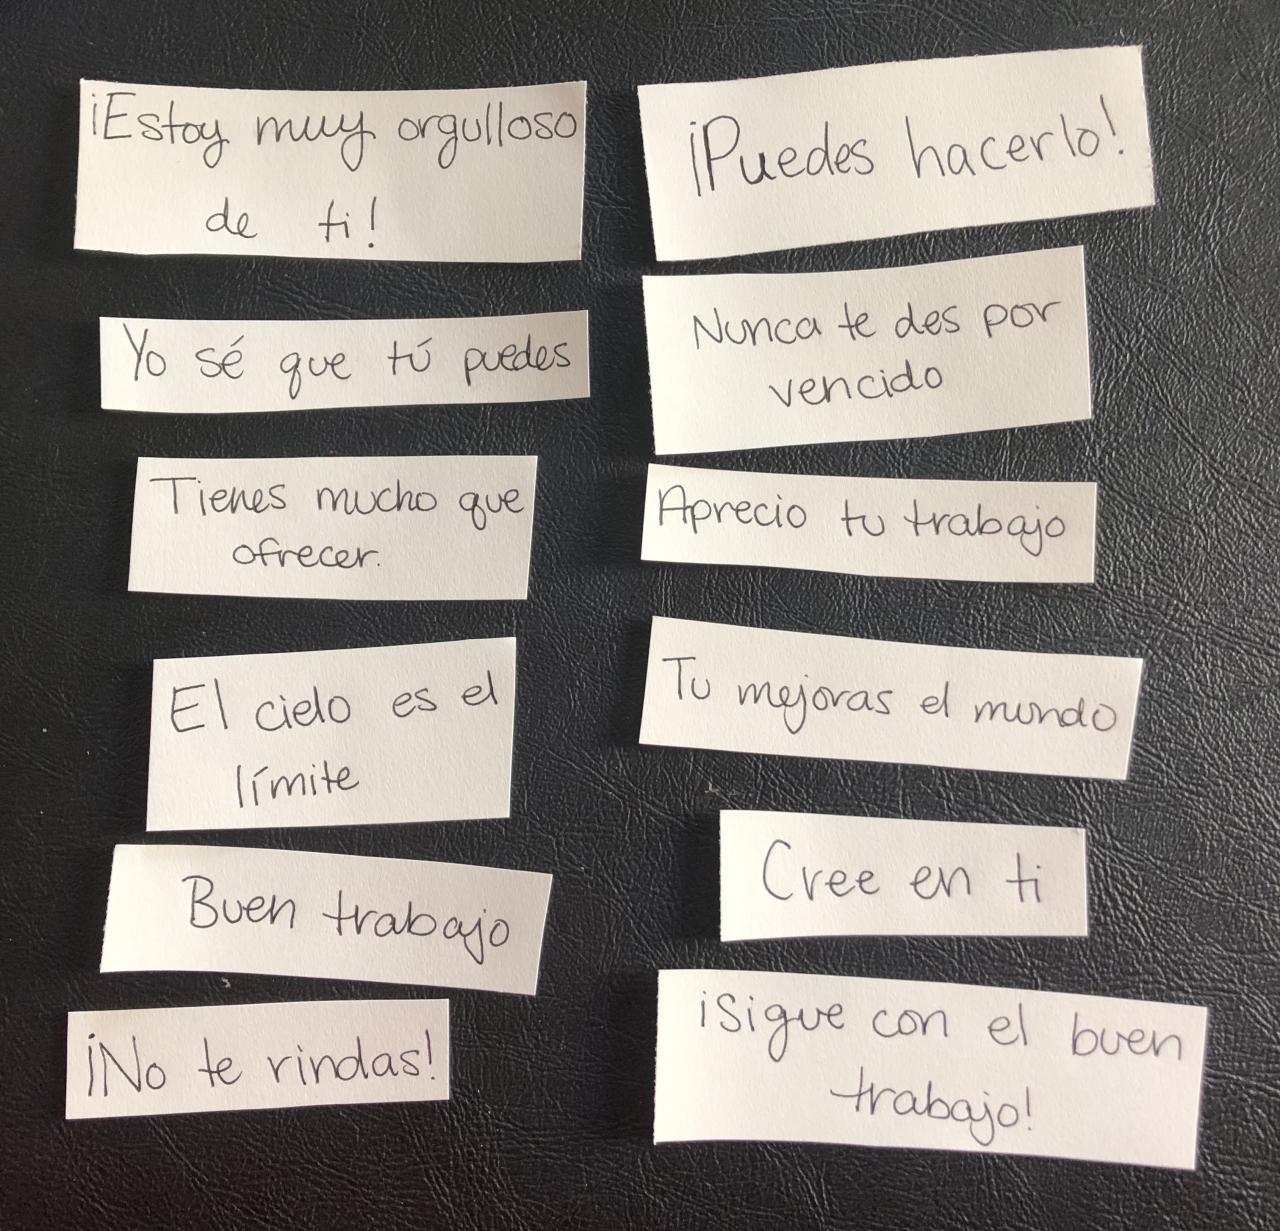 ¡Estoy muy orgulloso
de ti!
Yo sé que tú puedes
Tienes mucho que
ofrecer.
El cielo es el
límite
Buen trabajo
¡No te rindas!
¡Puedes hacerlo!
Nunca te des por
vencido
Aprecio tu trabajo
Tu mejoras el mundo
Cree en ti
¡Sigue con el buen
trabajo!